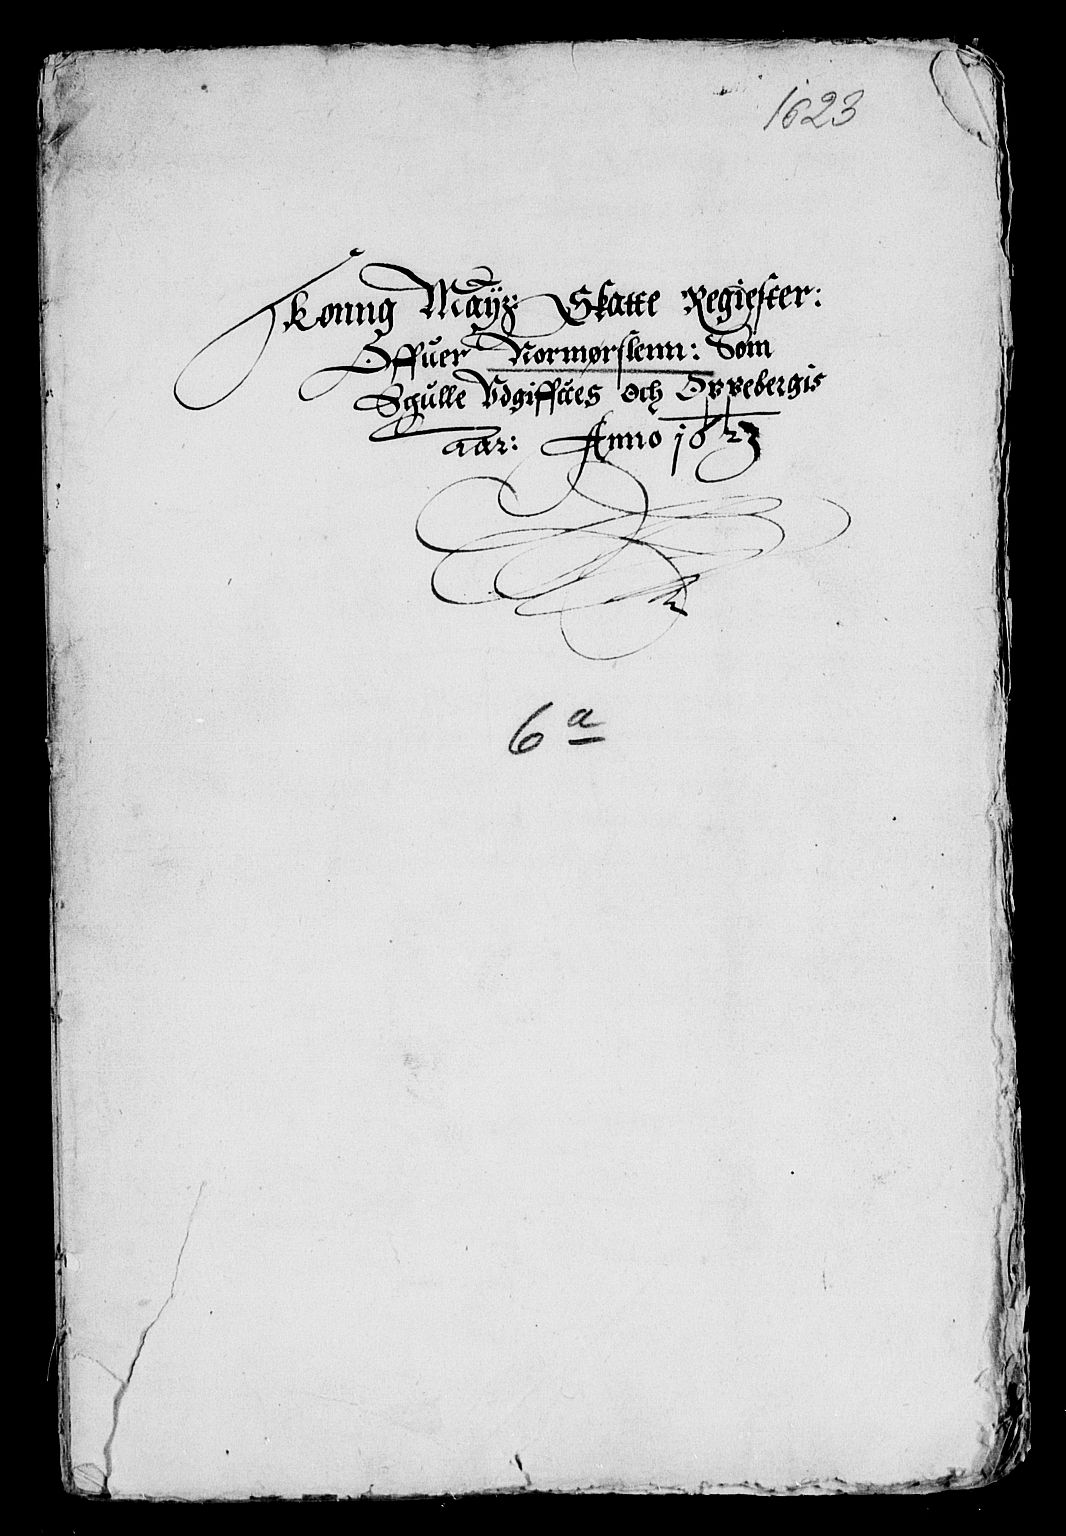 1623
Konng Mayz: Skatte Regiester:
Offuer Normørslenn: Som
Sgulle Vdgiffues Och Oppebergis
aar: Anno 1623
6 a